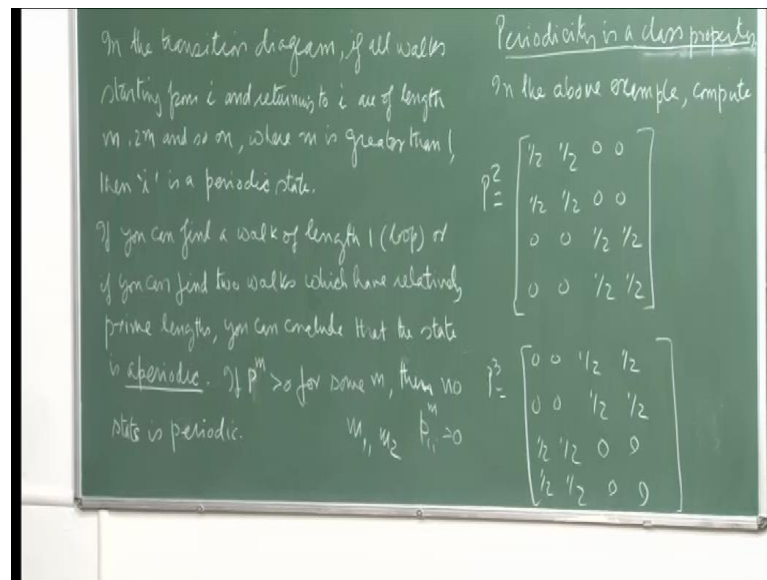 In the transition diagram, if all walks
starting from i and returning to i are of length
m, 2m and so on, where m is greater than 1,
then 'i' is a periodic state.
If you can find a walk of length 1 (loop) or
if you can find two walks which have relatively
prime lengths, you can conclude that the state
is aperiodic. If P^m >0 for some m, then no
state is periodic.
m₁, m₂ P₁₁^m >0
Periodicity is a class property
In the above example, compute
P² =
1/2 1/2 0 0
1/2 1/2 0 0
0 0 1/2 1/2
0 0 1/2 1/2
P³ =
0 0 1/2 1/2
0 0 1/2 1/2
1/2 1/2 0 0
1/2 1/2 0 0